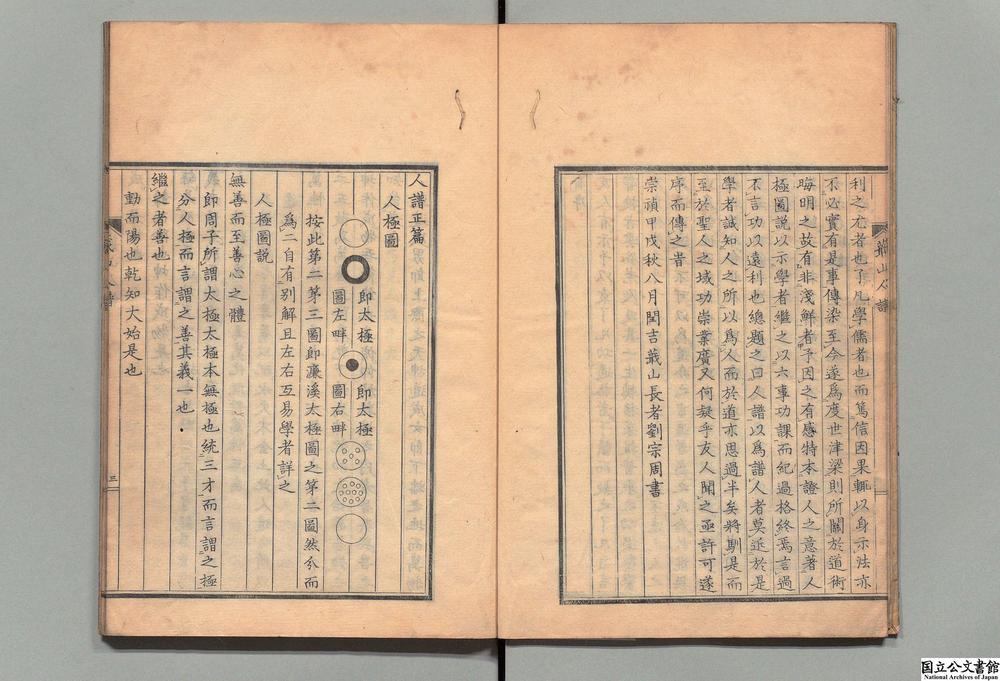 利之尤者也了凡學儒者也而篤信因果輒以身示法亦
不必實有是事傳染至今遂爲度世津梁則所關於道術
晦明之故有非淺鮮者予因之有感特本證人之意著人
極圖說以示學者繼之以六事功課而紀過格終焉言過
不言功以遠利也總題之曰人譜以爲譜人者莫近於是
學者誠知人之所以爲人而於道亦思過半矣將馴是而
至於聖人之域功崇業廣又何疑乎友人聞之亟許可遂
序而傳之旹
崇禎甲戌秋八月閏吉蕺山長者劉宗周書
蕺山人譜
人譜正篇
人極圖
即太極
圖左畔
即太極
圖右畔
按此第二第三圖即濂溪太極圖之第二圖然分而
爲二自有別解且左右互易學者詳之
人極圖說
無善而至善心之體
即周子所謂太極太極本無極也統三才而言謂之極
分人極而言謂之善其義一也
繼之者善也
動而陽也乾知大始是也
三
国立公文書館
National Archives of Japan